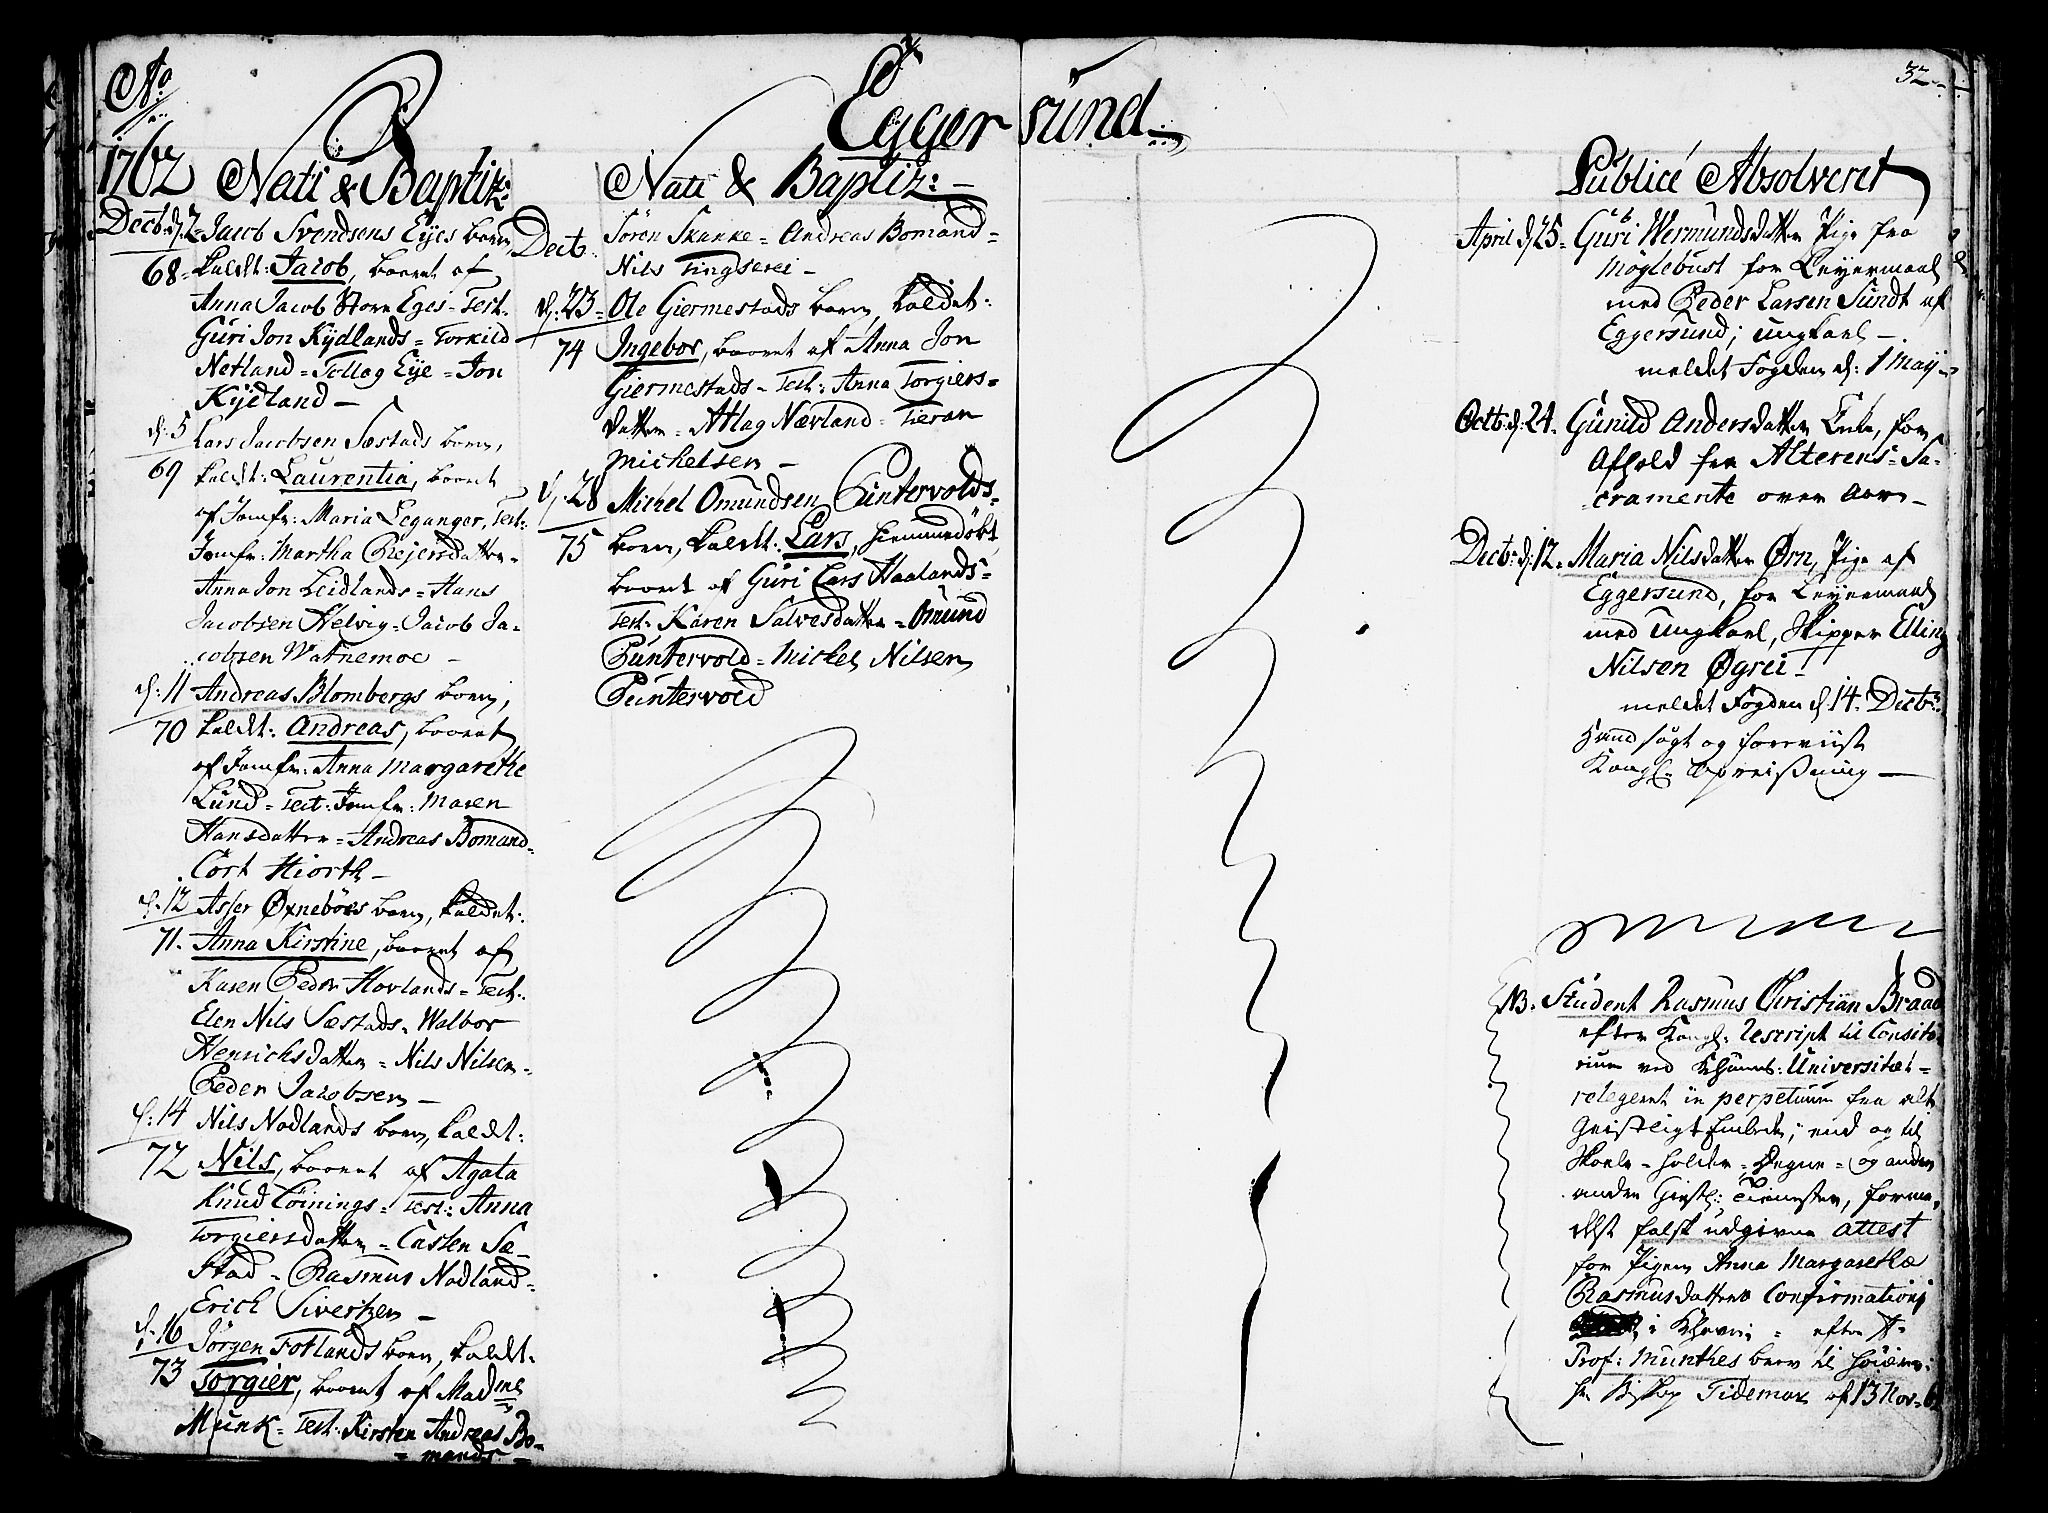 32.
Ao
Eggersund
1762 Nati & Baptiz:
Decb: d: 2 Jacob Svendsens Eyes barn,
68. kaldt: Jacob, baaret af
Anna Jacob Store Eges = Test:
Guri Jon Kydlands = Torkild
Netland = Tollag Eye = Jon
Kydland –
d: 5 Lars Jacobsen Sæstads barn,
69 kaldt: Laurentia, baaret
af Jomfr: Maria Leganger, Test:
Jomfr: Martha Rejersdatter =
Anna Jon Leidlands = Hans
Jacobsen Helvig = Jacob Ja-
cobsen Watnemoe –
d: 11 Andreas Blombergs barn,
70 kaldt: Andreas, baaret
af Jomfr: Anna Margarethe
Lund = Test: Jomfr: Maren
Hansdatter = Andreas Bomand =
Cort Hiorth –
d: 12 Asser Øxnebøes barn, kaldet:
71. Anna Kirstine, baaret af
Karen Peder Hovlands = Test:
Elen Nils Sæstads = Walbor
Henrichsdatter = Nils Nilsen =
Peder Jacobsen –
d: 14 Nils Nodlands barn, kaldt:
72 Nils, baaret af Agata
Knud Löinings = Test: Anna
Torgiersdatter = Casten Sæ-
stad = Rasmus Nodland =
Erich Sivertzen –
d: 16 Jörgen Fotlands barn, kaldt:
73 Torgier, baaret af Madme
Munk = Test: Kirsten Andreas Bo-
mands –
Nati & Baptiz: –
Decb: Sören Skanke = Andreas Bomand =
Nils Tingserei –
d: 23 Ole Giermestads barn, kaldet:
74 Ingebor, baaret af Anna Jon
Giermestads = Test: Anna Torgiers =
datter = Atlag Nævland = Tieran
Michelsen –
d: 28 Michel Omundsen Puntervolds
75 barn, kaldt: Lars, hiemmedøbt,
baaret af Guri Lars Haalands =
Test: Karen Salvesdatter = Omund
Puntervold = Mickel Nilsen
Puntervold
Publicé Absolveret
April d: 25 = Guri Wermundsdatter Pige fra
Möglebust for Leyermaal
med Peder Larsen Sundt af
Eggersund; ungkarl –
meldet Fogden d: 1 Maij –
Octb: d: 24. Gunild Andersdatter Enke, for
Afhold fra Alterens = Sa-
cramente over Aar –
Decb: d: 12 = Maria Nilsdatter Ørn, Pige af
Eggersund, for Leyermaal
med ungkarl, Skipper Elling
Nilsen Øgrei –
meldet Fogden d: 14 Decbr:
hand søgt og foreviist
Kongl: Opreißning –
NB. Student Rasmus Christian Braad
efter Kongl: Rescript til Consisto-
rium ved Khavns: Universitæt =
relegeret in perpetuum fra alt
Geistligt Embede; end og til
Skole = holder = Degne = og anden
andre Giestl: Tienester, forme-
delst falsk udgivne Attest
for Pigen Anna Margarethæ
Rasmusdatters Confirmation
i Khavn = efter Hr.
Prof: Munthes brev til
Hr Biskop Tidemar af 13 Nov: 62